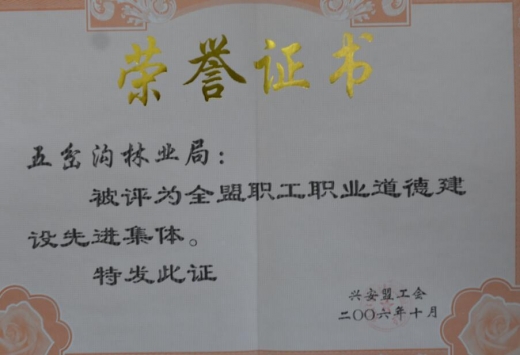 荣誉证书
五岔沟林业局：
被评为全盟职工职业道德建
设先进集体。
特发此证
兴安盟工会
二〇〇六年十月